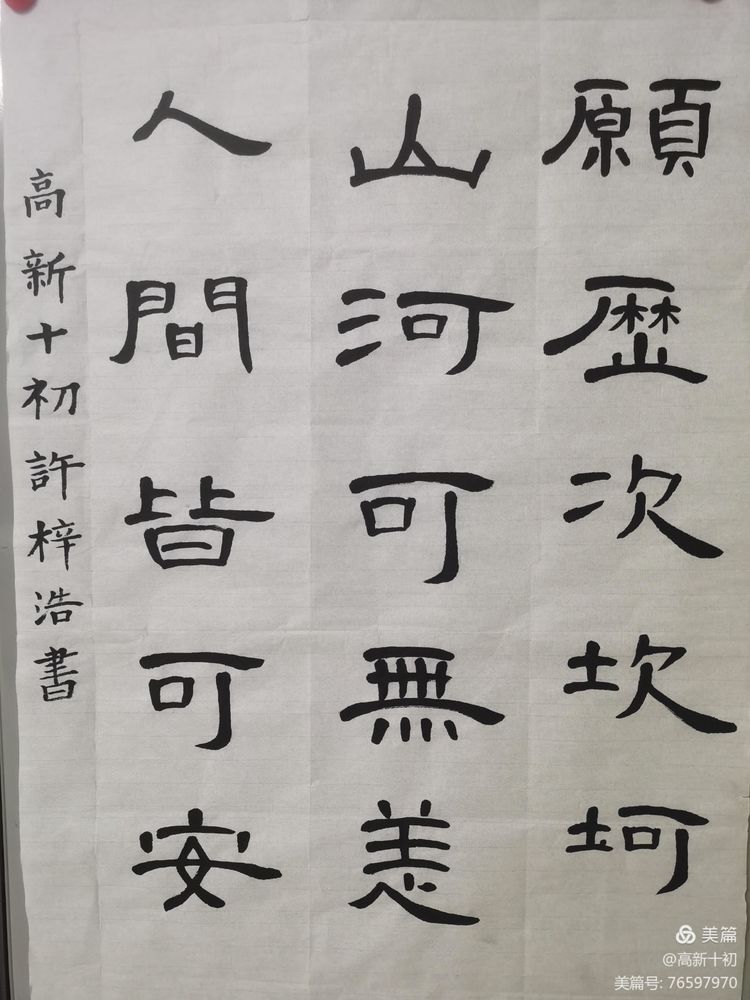 願歷次坎坷
山河可無恙
人間皆可安
高新十初許梓浩書
美篇
@高新十初
美篇号: 76597970